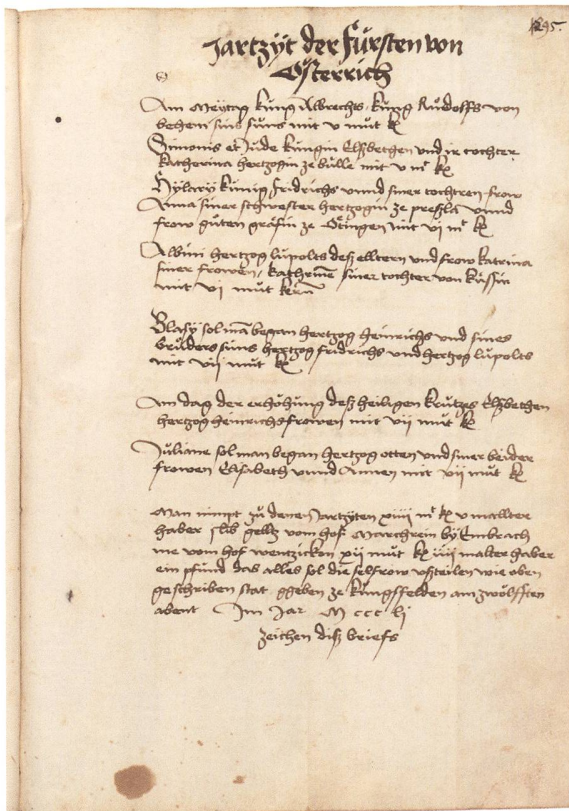 295.
Jartzÿt der Fürsten von
Österrich
Am Meÿtag küng Albrechts küng Rüdolffs von
behem sins suns mit v müt k
Simonis et Jude küngin Elsbethen und ir tochter
Katherina hertzogin ze mit v mt k
Hylarÿ künig fridrichs unnd siner tochtren frow
Anna siner schwester hertzogin ze preßla unnd
frow güten gräfin ze Ötingen mit vi mt k
Albini hertzog lüpolts deß elltern und frow katrina
siner frowen, katherinen siner tochter von Kussin
mit vi müt kern
Blasÿ sol man began hertzog heinrichs und sines
brüders süns hertzog fridrichs und hertzog lüpolts
mit vii müt k
Am dag der erhöhung deß heiligen krützes Elßbethen
hertzog heinrichs frowen mit vii müt k
Juliane sol man began hertzog otten und siner beider
frowen Elsabeth unnd Annen mit vii müt k
Man nimpt zü denen Jartzÿten xiiii mt k v mallter
haber gelltz vom hof Marchrein bÿ Embrach
me vom hof wentzickon xii müt k iiii malter haber
ein pfund das alles sol die selfrow ußteilen wie oben
geschriben stat ggeben ze küngsfelden am zwölfften
abent Jm Jar M ccc lj
zeichen diß briefs